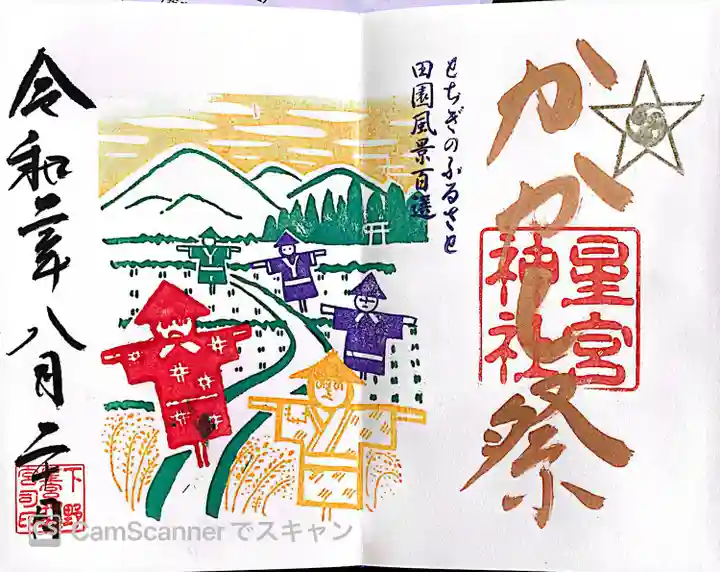 かかし祭
星宮
神社
とちぎのふるさと
田園風景百選
令和二年八月二十日
下野
宮司印
CamScannerでスキャン